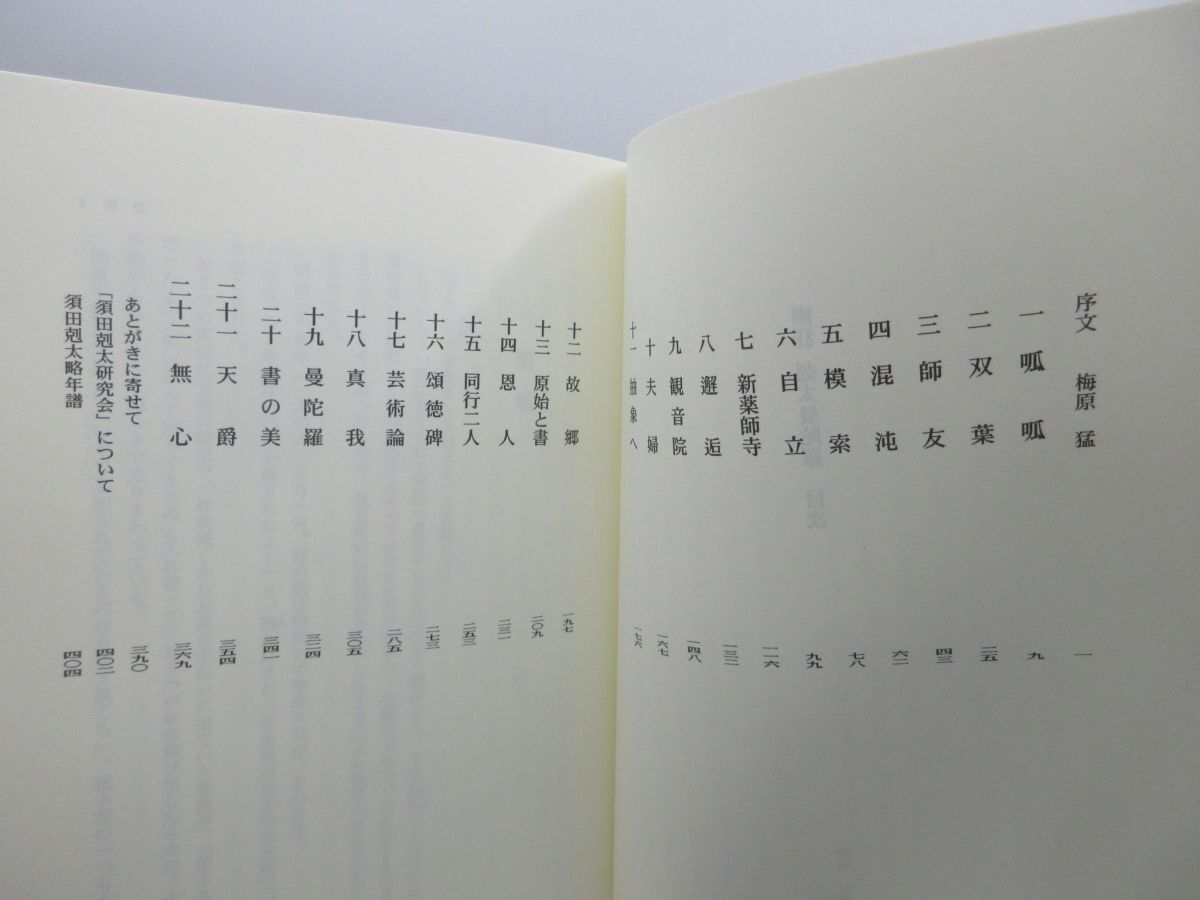 序文　梅原　猛　一
一　呱　呱　九
二　双　葉　二五
三　師　友　四三
四　混　沌　六二
五　模　索　七八
六　自　立　九九
七　新薬師寺　一一六
八　邂　逅　一三二
九　観音院　一四八
十　夫　婦　一六七
十一　抽象へ　一七六
十二　故　郷　一九七
十三　原始と書　二〇九
十四　恩　人　二三一
十五　同行二人　二五三
十六　頌徳碑　二七三
十七　芸術論　二八五
十八　真　我　三〇五
十九　曼陀羅　三二四
二十　書の美　三四一
二十一　天　爵　三五四
二十二　無　心　三六九
あとがきに寄せて　三九〇
「須田剋太研究会」について　四〇二
須田剋太略年譜　四〇四